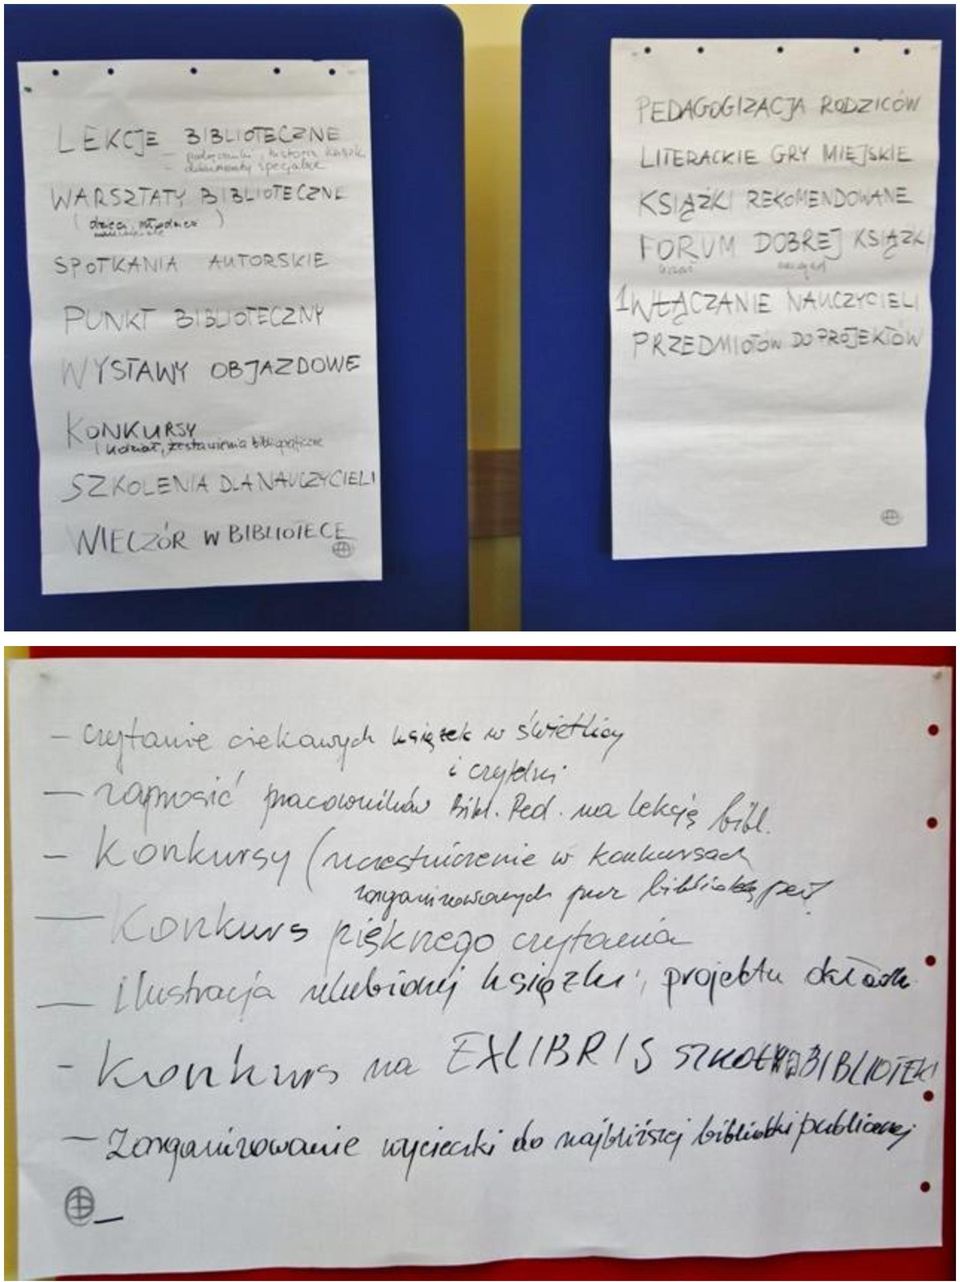 LEKCJE BIBLIOTECZNE
– podręczniki, historia książk
– dokumenty specjalne
WARSZTATY BIBLIOTECZNE
( dzieci, młodzież )
SPOTKANIA AUTORSKIE
PUNKT BIBLIOTECZNY
WYSTAWY OBJAZDOWE
KONKURSY
( udział, zestawienia bibliograficzne
SZKOLENIA DLA NAUCZYCIELI
WIECZÓR W BIBLIOTECE
PEDAGOGIZACJA RODZICÓW
LITERACKIE GRY MIEJSKIE
KSIĄŻKI REKOMENDOWANE
FORUM DOBREJ KSIĄŻKI
1 WŁĄCZANIE NAUCZYCIELI
PRZEDMIOTÓW DO PROJEKTÓW
– czytanie ciekawych książek w świetlicy
i czytelni
– zaprosić pracowników Bibl. Ped. na lekcję bibl.
– Konkursy (uczestniczenie w konkursach
zorganizowanych przez bibliotekę ped.)
– Konkurs pięknego czytania
– Ilustracja ulubionej książki, projektu okładk
– Konkurs na EXLIBRIS SZKOLNEJ BIBLIOTEKI
– Zorganizowanie wycieczki do najbliższej biblioteki publicznej
–